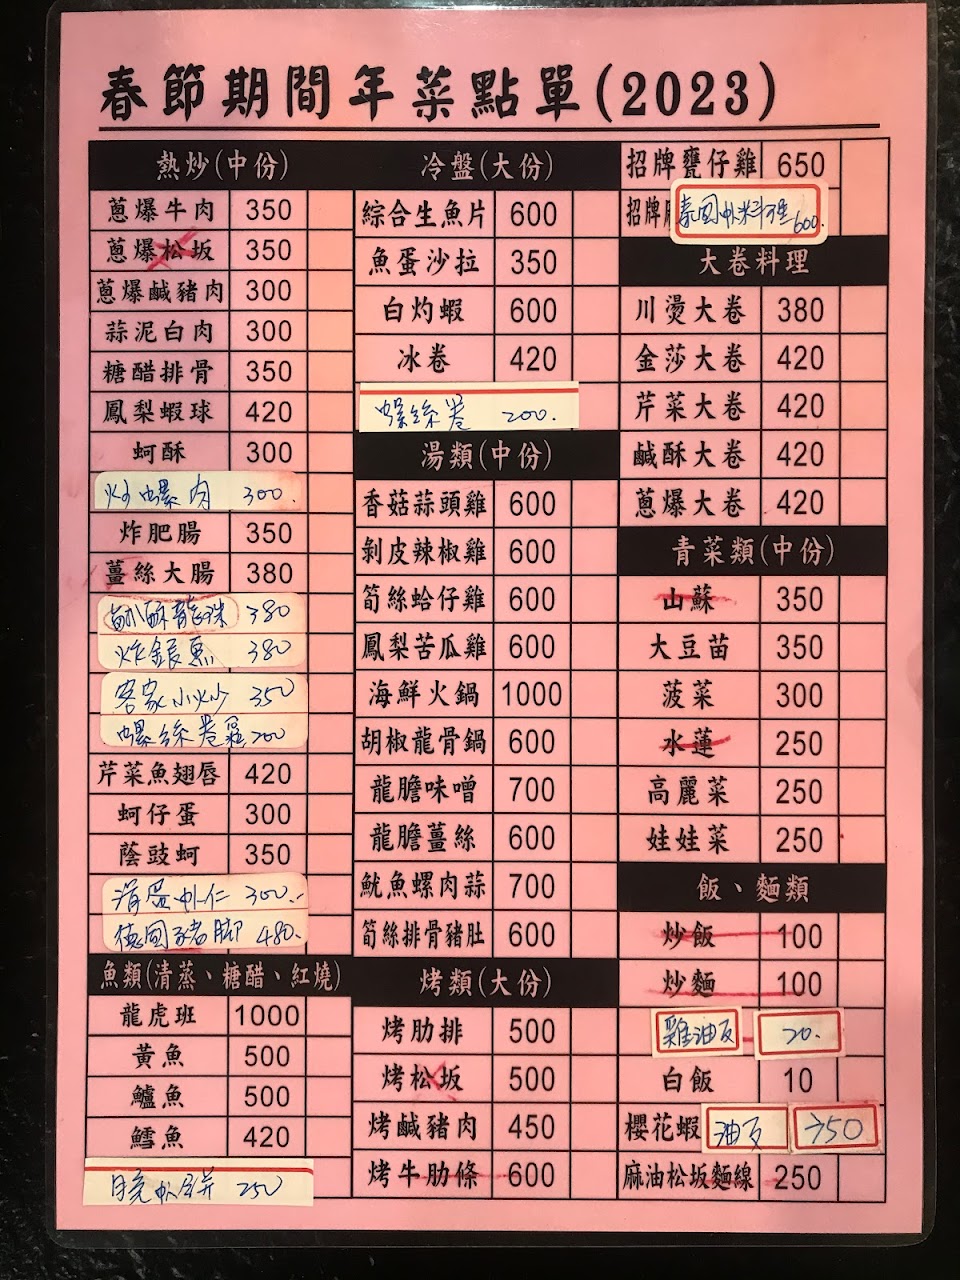 春節期間年菜點單(2023)
熱炒(中份)
蔥爆牛肉 350
蔥爆松坂 350
蔥爆鹹豬肉 300
蒜泥白肉 300
糖醋排骨 350
鳳梨蝦球 420
蚵酥 300
炒螺肉 300.
炸肥腸 350
薑絲大腸 380
鹹酥龍珠 380
炸銀魚 380
客家小炒 350
螺絲卷 200
芹菜魚翅唇 420
蚵仔蛋 300
蔭豉蚵 350
滑蛋虾仁 300.-
德国豬脚 480.
魚類(清蒸、糖醋、紅燒)
龍虎班 1000
黃魚 500
鱸魚 500
鱈魚 420
月亮虾餅 250
冷盤(大份)
綜合生魚片 600
魚蛋沙拉 350
白灼蝦 600
冰卷 420
螺絲卷 200.
湯類(中份)
香菇蒜頭雞 600
剝皮辣椒雞 600
筍絲蛤仔雞 600
鳳梨苦瓜雞 600
海鮮火鍋 1000
胡椒龍骨鍋 600
龍膽味噌 700
龍膽薑絲 600
魷魚螺肉蒜 700
筍絲排骨豬肚 600
烤類(大份)
烤肋排 500
烤松坂 500
烤鹹豬肉 450
烤牛肋條 600
招牌甕仔雞 650
招牌 泰国虾料理 600.
大卷料理
川燙大卷 380
金莎大卷 420
芹菜大卷 420
鹹酥大卷 420
蔥爆大卷 420
青菜類(中份)
山蘇 350
大豆苗 350
菠菜 300
水蓮 250
高麗菜 250
娃娃菜 250
飯、麵類
炒飯 100
炒麵 100
雞油反 20.
白飯 10
櫻花蝦 油反 350
麻油松坂麵線 250